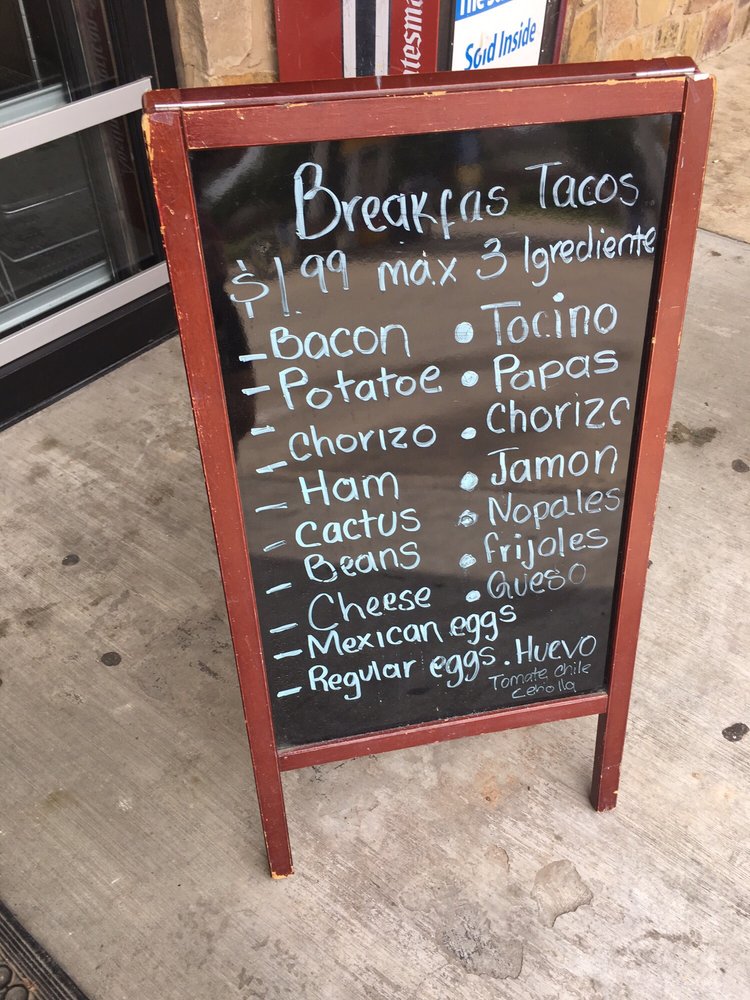 Sold Inside
Breakfas Tacos
$1.99 máx 3 Igrediente
- Bacon • Tocino
- Potatoe • Papas
- Chorizo • Chorizo
- Ham • Jamon
- Cactus • Nopales
- Beans • frijoles
- Cheese • Queso
- Mexican eggs
- Regular eggs. Huevo
Tomate, Chile